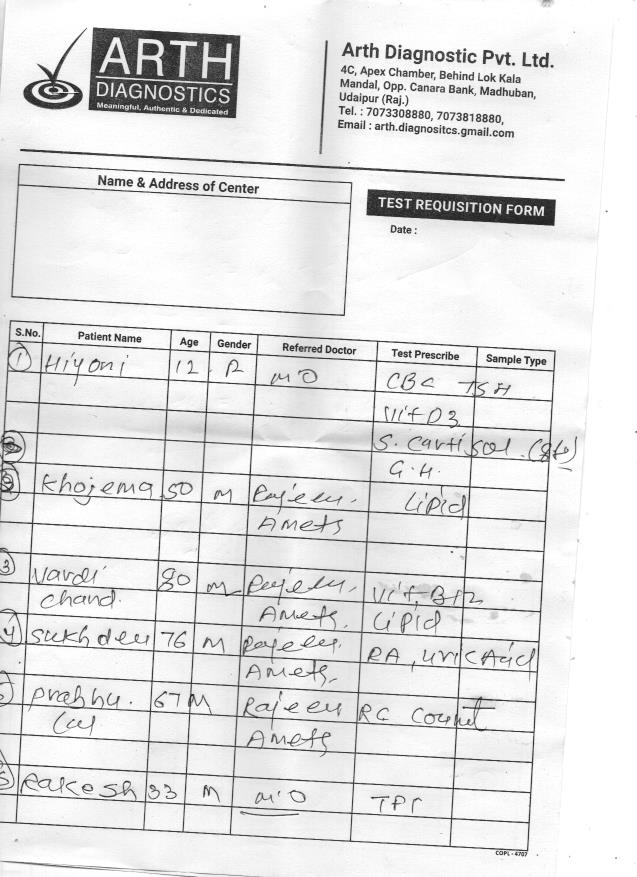 ARTH
DIAGNOSTICS
Meaningful, Authentic & Dedicated
Arth Diagnostic Pvt. Ltd.
4C, Apex Chamber, Behind Lok Kala
Mandal, Opp. Canara Bank, Madhuban,
Udaipur (Raj.)
Tel. : 7073308880, 7073818880,
Email : arth.diagnositcs.gmail.com
Name & Address of Center
TEST REQUISITION FORM
Date :
S.No. Patient Name Age Gender Referred Doctor Test Prescribe Sample Type
1 Hiyoni 12 MO CBC TSH
Vit D3
S. Cartisol
G.H.
2 Khojema 50 M Rajeev. Lipid
Amets
3 Nardi 80 M Rajeev. Vit. B12
Chand. Amets. Lipid
4 Sukhdev 76 M Rajeev. RA, Uric Acid
Amets.
Prabhu. 67 M Rajeev RC Count
Lal Amets
Rakesh 33 M MO
COPL - 4707